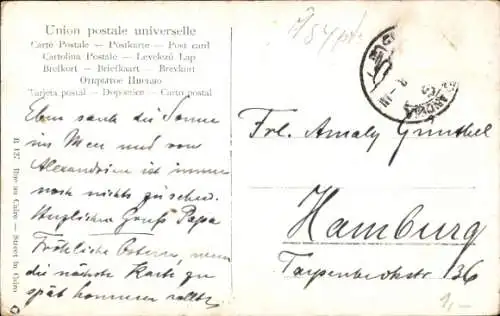 Union postale universelle
Carte Postale — Postkarte — Post card
Cartolina Postale — Levelező Lap
Brefkort — Briefkaart — Brevkort
Открытое Письмо
Tarjeta postal — Dopisnice — Carto postal
Eben sank die Sonne
ins Meer und von
Alexandrien ist immer
noch nichts zu sehen.
Herzlichen Gruß Papa
Fröhliche Ostern, wenn
die nächste Karte zu
spät kommen sollte.
B 127 Rue au Caire — Street in Cairo
Frl. Amaly Gunthel
Hamburg
Tarpenbeckstr 136
1,-